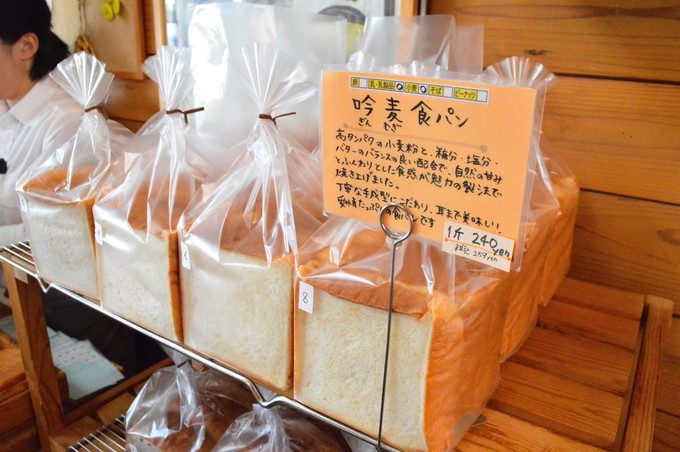 卵 乳・乳製品 小麦 そば ピーナッツ
吟麦食パン
ぎん むぎ
高タンパクの小麦粉と、糖分・塩分・
バターのバランスの良い配合で、自然の甘み
とふんわりとした食感が魅力の製法で
焼き上げました。
丁寧な手成型にこだわり、耳まで美味しい、
愛情たっぷりの食パンです
1斤 240yen
税込 259yen
8